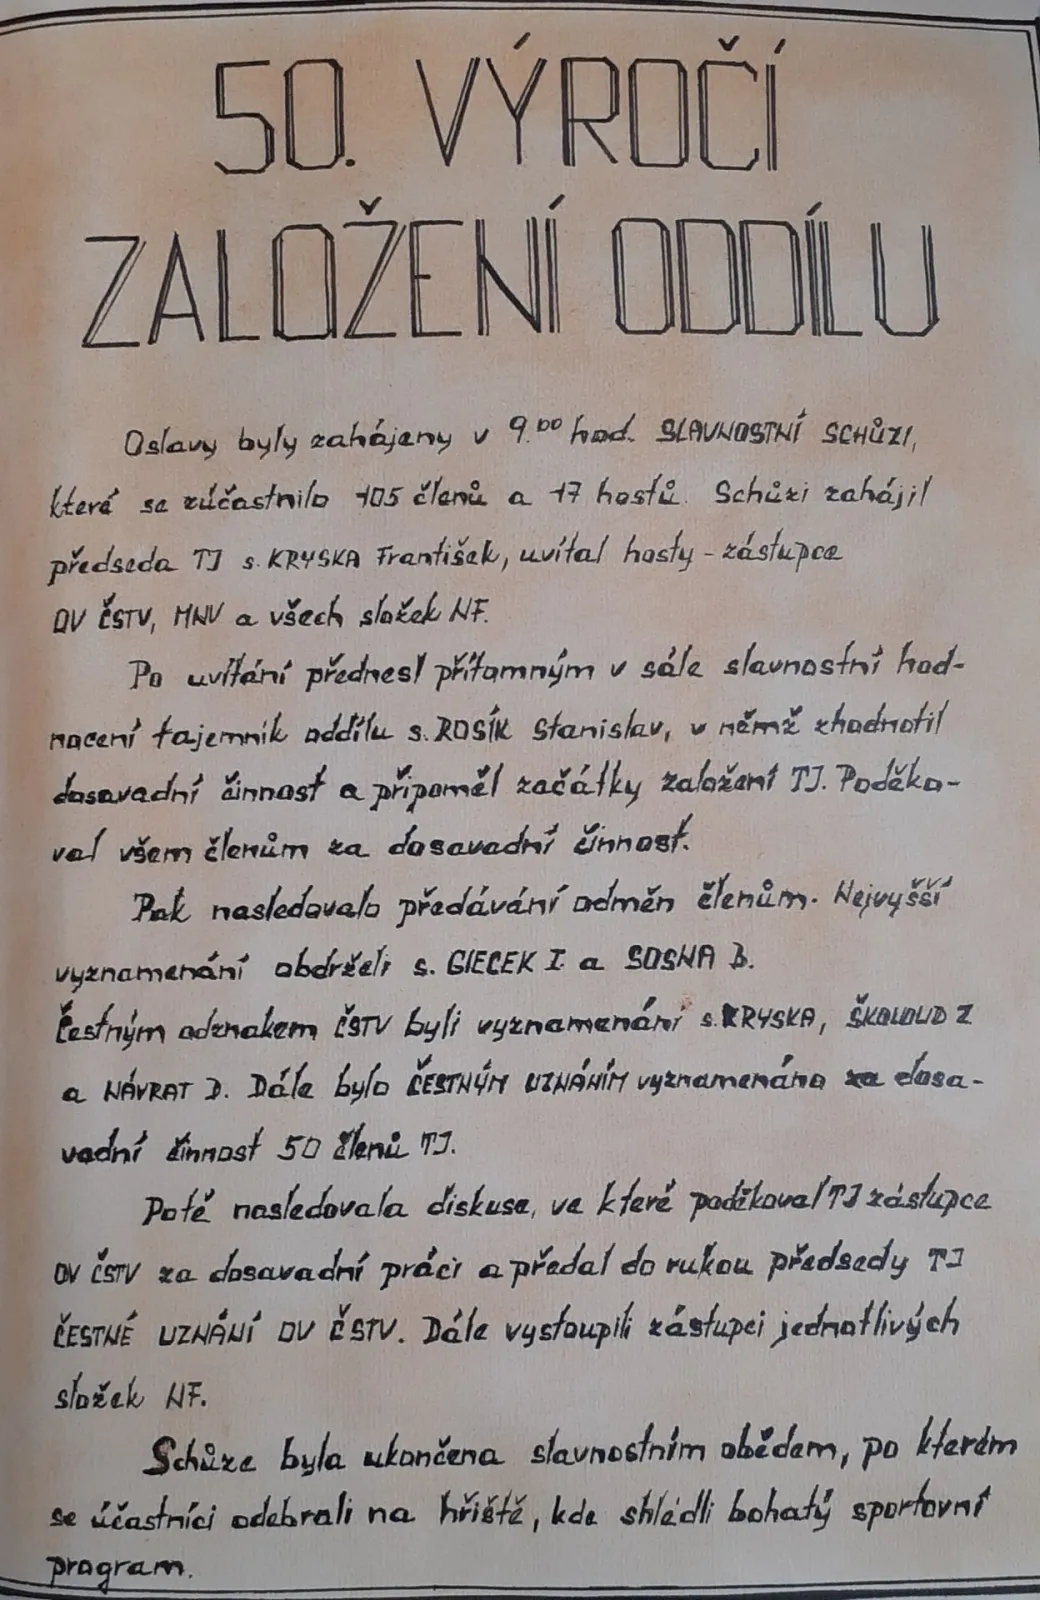 50. VÝROČÍ
ZALOŽENÍ ODDÍLU
Oslavy byly zahájeny v 9.00 hod. SLAVNOSTNÍ SCHŮZI,
které se zúčastnilo 105 členů a 17 hostů. Schůzi zahájil
předseda TJ s. KRYSKA František, uvítal hosty - zástupce
OV ČSTV, MNV a všech složek NF.
Po uvítání přednesl přítomným v sále slavnostní hod-
nocení tajemník oddílu s. ROSÍK Stanislav, v němž zhodnotil
dosavadní činnost a připoměl začátky založení TJ. Poděko-
val všem členům za dosavadní činnost.
Pak nasledovalo předávání odměn členům. Nejvyšší
vyznamenání obdrželi s. GIECEK I. a SOSNA B.
Čestným odznakem ČSTV byli vyznamenáni s. KRYSKA, ŠKOLOUD Z
a NÁVRAT D. Dále bylo ČESTNÝM UZNÁNÍM vyznamenáno za dosa-
vadní činnost 50 členů TJ.
Poté nasledovala diskuse, ve které poděkoval TJ zástupce
OV ČSTV za dosavadní práci a předal do rukou předsedy TJ
ČESTNÉ UZNÁNÍ OV ČSTV. Dále vystoupili zástupci jednotlivých
složek NF.
Schůze byla ukončena slavnostním obědem, po kterém
se účastníci odebrali na hřiště, kde shlédli bohatý sportovní
program.